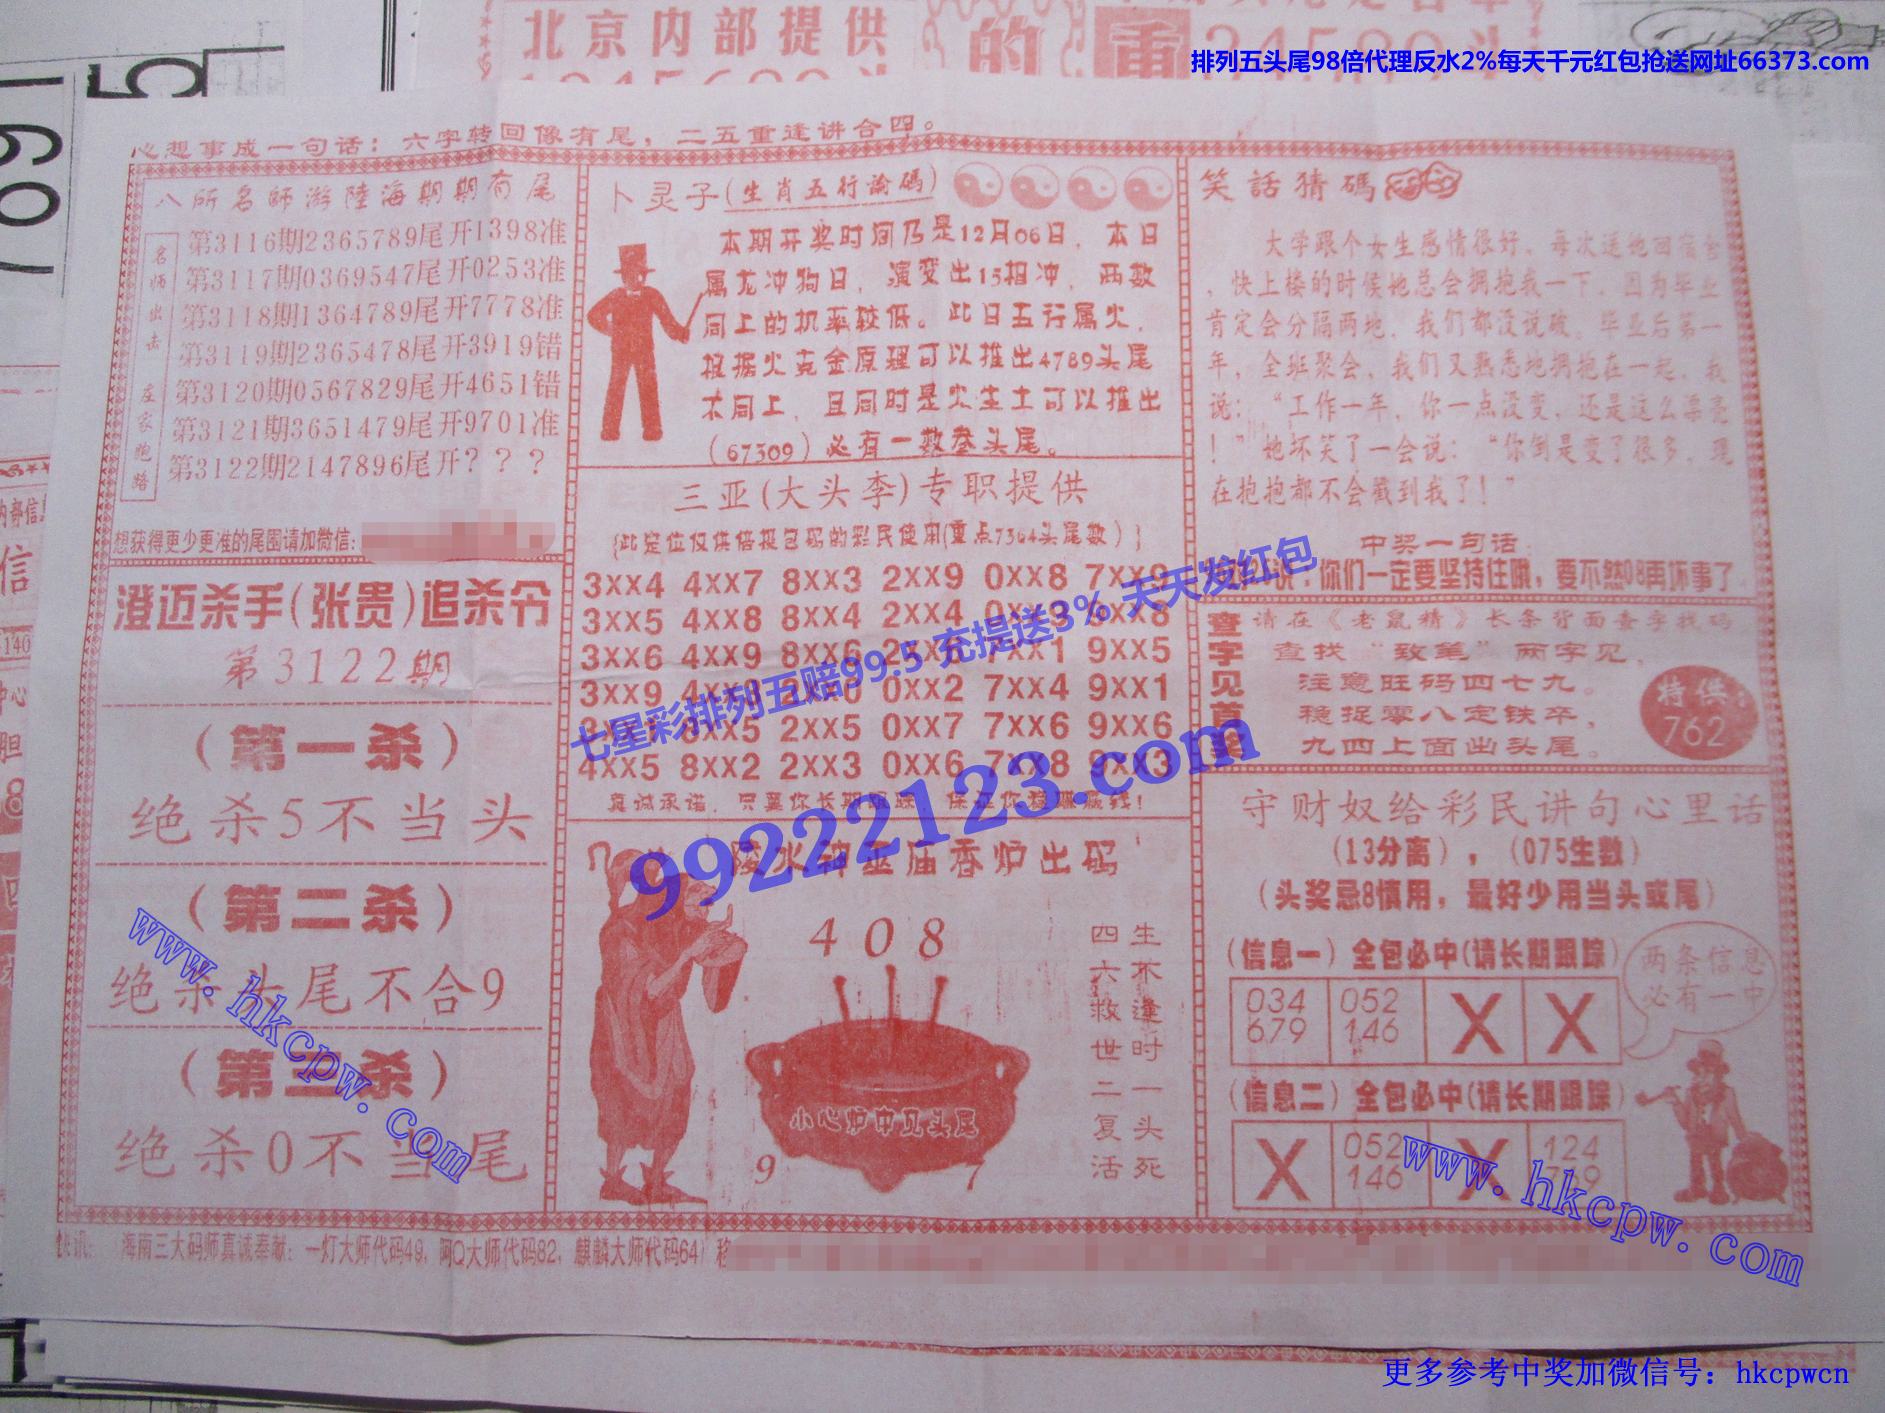 北京内部提供
的
排列五头尾98倍代理反水2%每天千元红包抢送网址66373.com
心想事成一句话：六字转回像有尾，二五重逢讲合四。
八所名师游陸海期期有尾
名师出击 庄家跑路
第3116期2365789尾开1398准
第3117期0369547尾开0253准
第3118期1364789尾开7778准
第3119期2365478尾开3919错
第3120期0567829尾开4651错
第3121期3651479尾开9701准
第3122期2147896尾开？？？
想获得更少更准的尾围请加微信:
澄迈杀手(张贵)追杀令
第3122期
（第一杀）
绝杀5不当头
（第二杀）
绝杀头尾不合9
（第三杀）
绝杀0不当尾
卜灵子(生肖五行論碼)
本期开奖时间乃是12月06日，本日
属龙冲狗日，演变出15相冲，两数
同上的机率较低。此日五行属火，
根据火克金原理可以推出4789头尾
不同上，且同时是火生土可以推出
(67309)必有一数叁头尾。
三亚(大头李)专职提供
{此定位仅供倍投包码的彩民使用(重点7364头尾数)}
3xx4 4xx7 8xx3 2xx9 0xx8 7xx9
3xx5 4xx8 8xx4 2xx4 0xx3 9xx8
3xx6 4xx9 8xx6 2xx6 7xx1 9xx5
3xx9 4xx3 2xx0 0xx2 7xx4 9xx1
8xx5 2xx5 0xx7 7xx6 9xx6
4xx5 8xx2 2xx3 0xx6 7xx8 9xx3
真诚承诺，只要你长期跟踪，保证你稳赚赢钱！
陵水神巫庙香炉出码
408
生不逢时一头死
四六救世二复活
小心炉中见头尾
9 7
笑話猜碼
大学跟个女生感情很好，每次送她回宿舍
，快上楼的时候她总会拥抱我一下，因为毕业
肯定会分隔两地，我们都没说破。毕业后第一
年，全班聚会，我们又熟悉地拥抱在一起，我
说：“工作一年，你一点没变，还是这么漂亮
！”她坏笑了一会说：“你倒是变了很多，现
在抱抱都不会戳到我了！”
中奖一句话
：你们一定要坚持住哦，要不然08再坏事了
查字见首奖
请在《老鼠精》长条背面查字找码
查找“致笔”两字见，
注意旺码四七九。
稳捉零八定铁卒，
九四上面出头尾。
特供：
762
守财奴给彩民讲句心里话
(13分离)，(075生数)
(头奖忌8慎用，最好少用当头或尾)
(信息一) 全包必中(请长期跟踪)
034 052 X X
679 146
两条信息
必有一中
(信息二) 全包必中(请长期跟踪)
X 052 X 124
146
海南三大码师真诚奉献：一灯大师代码49，阿Q大师代码82，麒麟大师代码64)
七星彩排列五赔99.5 充提送3% 天天发红包
99222123.com
www.hkcpw.com
www.hkcpw.com
更多参考中奖加微信号：hkcpwcn